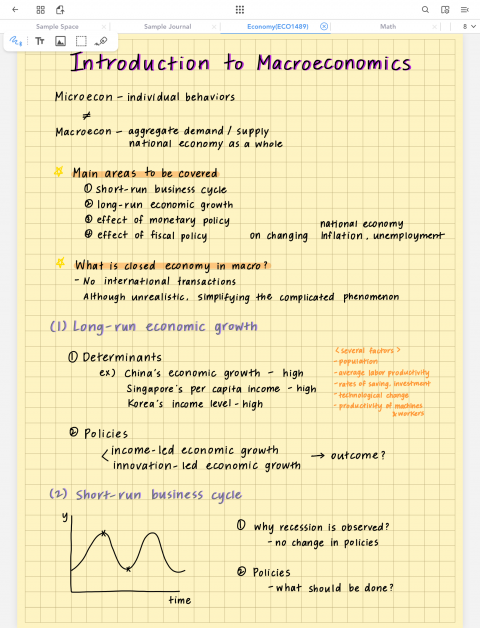 Sample Space
Sample Journal
Economy(ECO1489)
Math
8
Introduction to Macroeconomics
Microecon – individual behaviors
≠
Macroecon – aggregate demand / supply
national economy as a whole
Main areas to be covered
① short-run business cycle
② long-run economic growth
③ effect of monetary policy
④ effect of fiscal policy on changing national economy
inflation, unemployment
What is closed economy in macro?
- No international transactions
Although unrealistic, simplifying the complicated phenomenon
(1) Long-run economic growth
① Determinants
ex) China's economic growth – high
Singapore's per capita income – high
Korea's income level – high
<several factors>
- population
- average labor productivity
- rates of saving, investment
- technological change
- productivity of machines
& workers
② Policies
income-led economic growth
innovation-led economic growth
→ outcome?
(2) Short-run business cycle
y
time
① why recession is observed?
- no change in policies
② Policies
- what should be done?